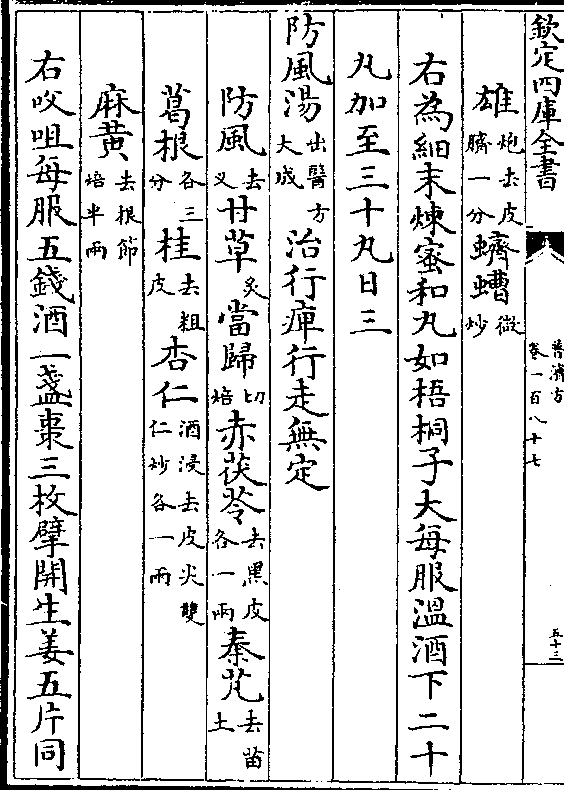 欽定四庫全書
普濟方
卷一百八十七
五十三
雄炮去皮臍一分蠐螬微炒
右為細末煉蜜和丸如梧桐子大每服温酒下二十
丸加至三十九日三
防風湯出醫方大成治行痺行走無定
防風去义甘草炙當歸切焙赤茯苓去黑皮各一兩秦艽去苗土
葛根各三分桂去粗皮杏仁酒浸去皮尖雙仁炒各一兩
麻黄去根節焙半兩
右㕮咀每服五錢酒一盞棗三枚擘開生姜五片同